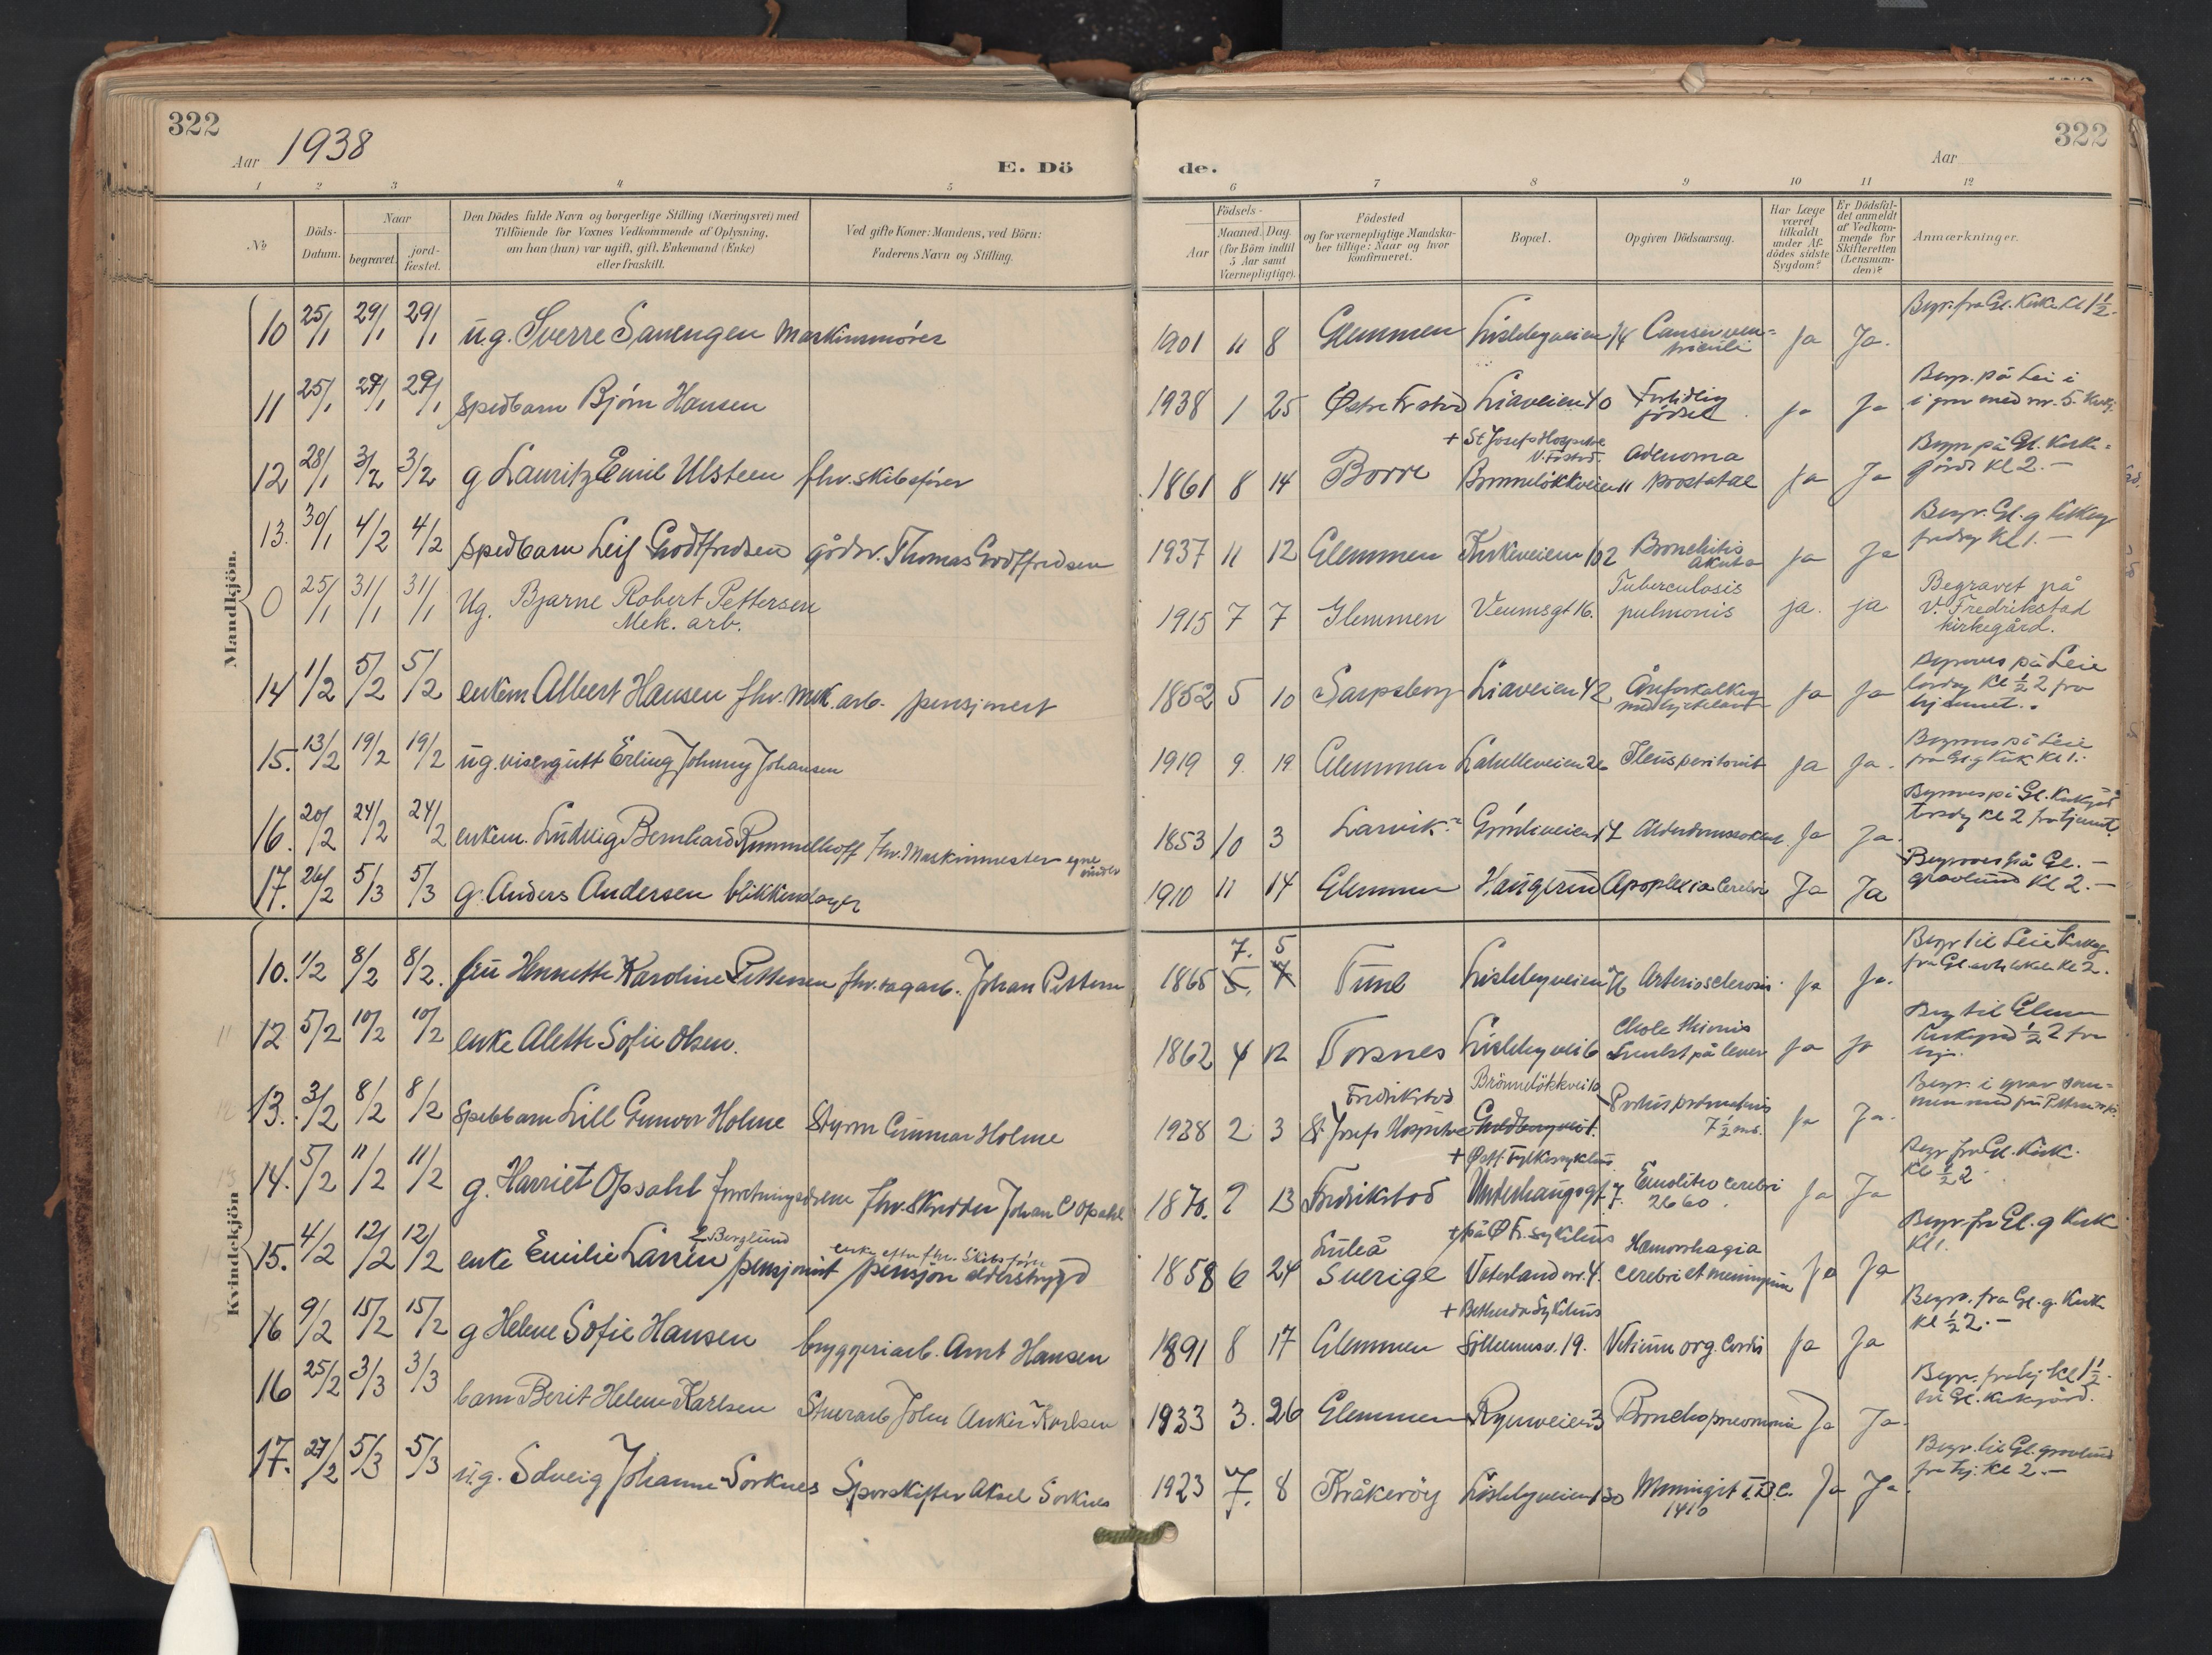 322
Aar 1938
E. Dö
1 2 3 4 5
No
Döds-Datum.
Naar
begravet. jord-fæstet.
Den Dödes fulde Navn og borgerlige Stilling (Næringsvei) med
Tilföiende for Voxnes Vedkommende af Oplysning,
om han (hun) var ugift, gift, Enkemand (Enke)
eller fraskilt.
Ved gifte Koner: Mandens, ved Börn:
Faderens Navn og Stilling.
Mandkjön.
10 25/1 29/1 29/1 ug. Sverre Sanengen Maskinmörer
11 25/1 29/1 29/1 spedbarn Bjørn Hansen
12 28/1 3/2 3/2 g Lauritz Emil Ulsteen fhv. skibsfører
13. 30/1 4/2 4/2 spedbarn Leif Godtfredsen gårdsv. Thomas Godtfredsen
0 25/1 31/1 31/1 Ug. Bjarne Robert Pettersen
Mek. arb.
14 1/2 5/2 5/2 enkem Albert Hansen fhv. mek. arb. pensjonert
15. 13/2 19/2 19/2 ug. visergutt Erling Johnny Johansen
16. 20/2 24/2 24/2 enkem. Ludvig Bernhard Rummelhoff fhv. Maskinmester
17. 26/2 5/3 5/3 g. Anders Andersen blikkenslager
Kvindekjön
10. 1/2 8/2 8/2. fru Hennette Karoline Pettersen fhv. sagarb. Johan Pettersen
11 12 5/2 10/2 10/2 enke Alette Sofie Olsen.
12 13. 3/2 8/2 8/2 spebbarn Lill Gunvor Holme Styrm Gunnar Holme
13 14. 5/2 11/2 11/2 g. Harriet Opsahl fhv. Skredder Johan C Opsahl
f. Berglund
15. 4/2 12/2 12/2 enke Emilie Larsen pensjonist enke efter fhv. Skibsfører
pensjon alderstrygd
16 9/2 15/2 15/2 g Helene Sofie Hansen bryggeriarb. Arnt Hansen
16 25/2 3/3 3/3 barn Berit Helene Karlsen Stuerarb John Anker Karlsen
17. 27/2 5/3 5/3 ug. Solveig Johanne Sorknes Sporskifter Aksel Sorknes
322
Aar
de.
6 7 8 9 10 11 12
Födsels-
Aar
Maaned. Dag.
(for Börn indtil
5 Aar samt
Værnepligtige).
Födested
og for værnepligtige Mandska-
ber tillige: Naar og hvor
konfirmeret.
Bopæl.
Opgiven Dödsaarsag.
Har Læge
været
tilkaldt
under Af-
dödes sidste
Sygdom?
Er Dödsfal-
det anmeldt
af Vedkom-
mende for
Skifteretten
(Lensman-
den)?
Anmærkninger.
Begr. fra Gl. Kirke kl 1½.
1901 11 8 Glemmen Lislebyveien 14 Cancer ven-
triculi Ja Ja.
Begr. på Leie i
i grav med nr. 5.
1938 1 25 Østre Fr.stad Liaveien 40 Fortidlig
fødsel Ja Ja
+ St Josefs Hospital
V. Fr.stad.
Begr på Gl. Kirke-
gård kl 2.-
1861 8 14 Borre Brønneløkkveien 11 Adenoma
prostatae Ja Ja
1937 11 12 Glemmen Kirkeveien 102 Bronchitis
akuta Ja Ja
fredag kl 1.-
1915 7 7 Glemmen Veumsgt 16. Tuberculosis
pulmonis ja. ja
Begravet på
V. Fredrikstad
kirkegård.
1852 5 10 Sarpsborg Liaveien 42 Åreforkalkning
Ja Ja
Begraves på Leie
lørdag kl ½ 2 fra
hjemmet.
1919 9. 19 Glemmen Ileus peritonit Ja Ja.
Begraves på Leie
fra Gl. g Kirk kl 1.
1853 10 3 Larvik Alderdomssvakhet Ja Ja.
Begraves på Gl. Kirkegård
torsdag kl 2 fra hjemmet
1910 11 14 Glemmen Haugerud Apoplexia cerebri Ja Ja
Begraves på Gl.-
gravlund kl 2.-
7. 5
1865 5. 7 Tune Lislebyveien 76 Arteriosclerosis. Ja Ja.
Begr til Leie Kirkeg
kl 2.
1862 4 12 Torsnes Lislebyvei 6 Ja Ja
Begr til Glemm
Kirkegård ½ 2 fra
hj.
Fredrikstad Brønneløkkvei 10
1938 2 3 St. Josefs Hospital Partus prematurus
7½ md. Ja Ja.
Begr. i grav sam-
men med fru Pettersen
+ Østf. Fylkessykehus
1870. 2 13 Fredrikstad Underhaugsgt. 7. Emolitio cerebri
2660. Ja Ja
Begr fra Gl. Kirk.
kl ½ 2
Luleå + på Ø Fr. sykehus
1858 6 24 Sverige Vaterland nr. 4. Hæmorrhagia
cerebri et meningum Ja Ja
Begr. fra Gl. g Kirk
kl 1.
+ Bethesda Sykehus
1891 8 17 Glemmen Vitium org. cordis Ja Ja
Begr. fra Gl. g. Kirk
kl ½ 2.-
1933 3. 26 Glemmen Rynveien 3 Bronchopneumonia Ja Ja.
Begr. fra hj kl 1½.
til Gl. kirkegård.
1923 7. 8 Kråkerøy Lislebyveien 130 Meningit T.B.C.
1410 Ja Ja.
Begr. til Gl. gravlund
fra hj. kl 2.-